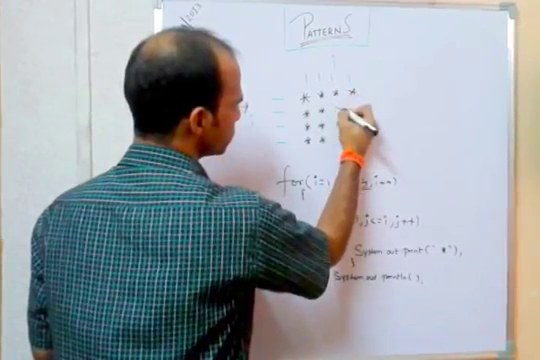 PATTERNS
* * * *
* *
* *
* *
for(i=1, i++)
{
j<=i,j++)
System out print(" * "),
}
System out println( ),